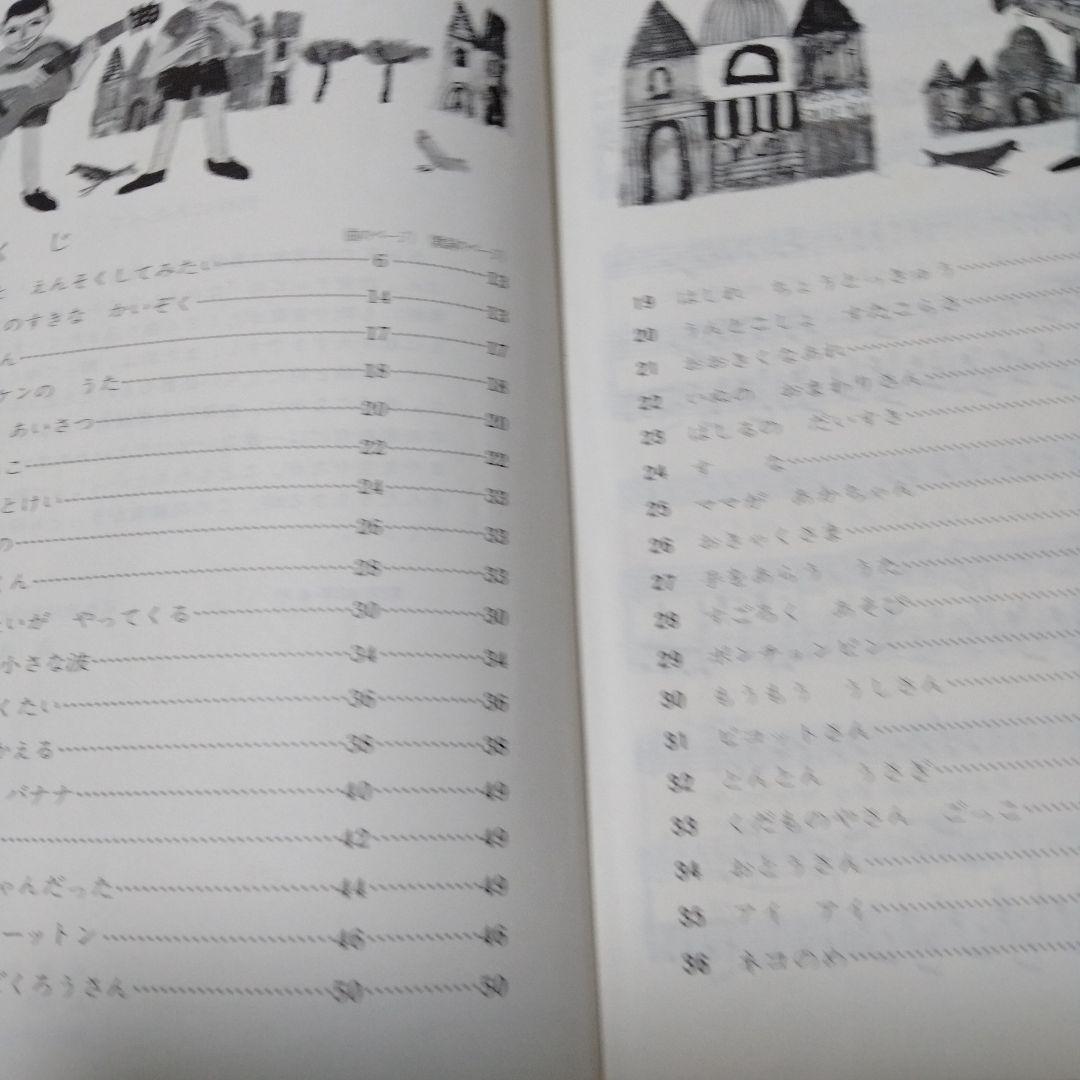 くじ
曲のページ
と えんそくしてみたい 6 13
のすきな かいぞく 14 13
ん 17 17
ケンの うた 18 18
あいさつ 20 20
こ 22 22
とけい 24 33
の 26 33
くん 28 33
たいが やってくる 30 30
小さな波 34 34
くたい 36 36
かえる 38 38
バナナ 40 49
42 49
ゃんだった 44 49
ーットン 46 46
ごくろうさん 50 50
19 はしれ ちょうとっきゅう
20 うんとこしょ すたこらさ
21 おおきくなあれ
22 いぬの おまわりさん
23 はしるの だいすき
24 す な
25 ママが あかちゃん
26 おきゃくさま
27 手をあらう うた
28 すごろく あそび
29 ポンチョンピン
30 もうもう うしさん
31 ピコットさん
32 とんとん うさぎ
33 くだものやさん ごっこ
34 おとうさん
35 アイ アイ
36 ネコのめ